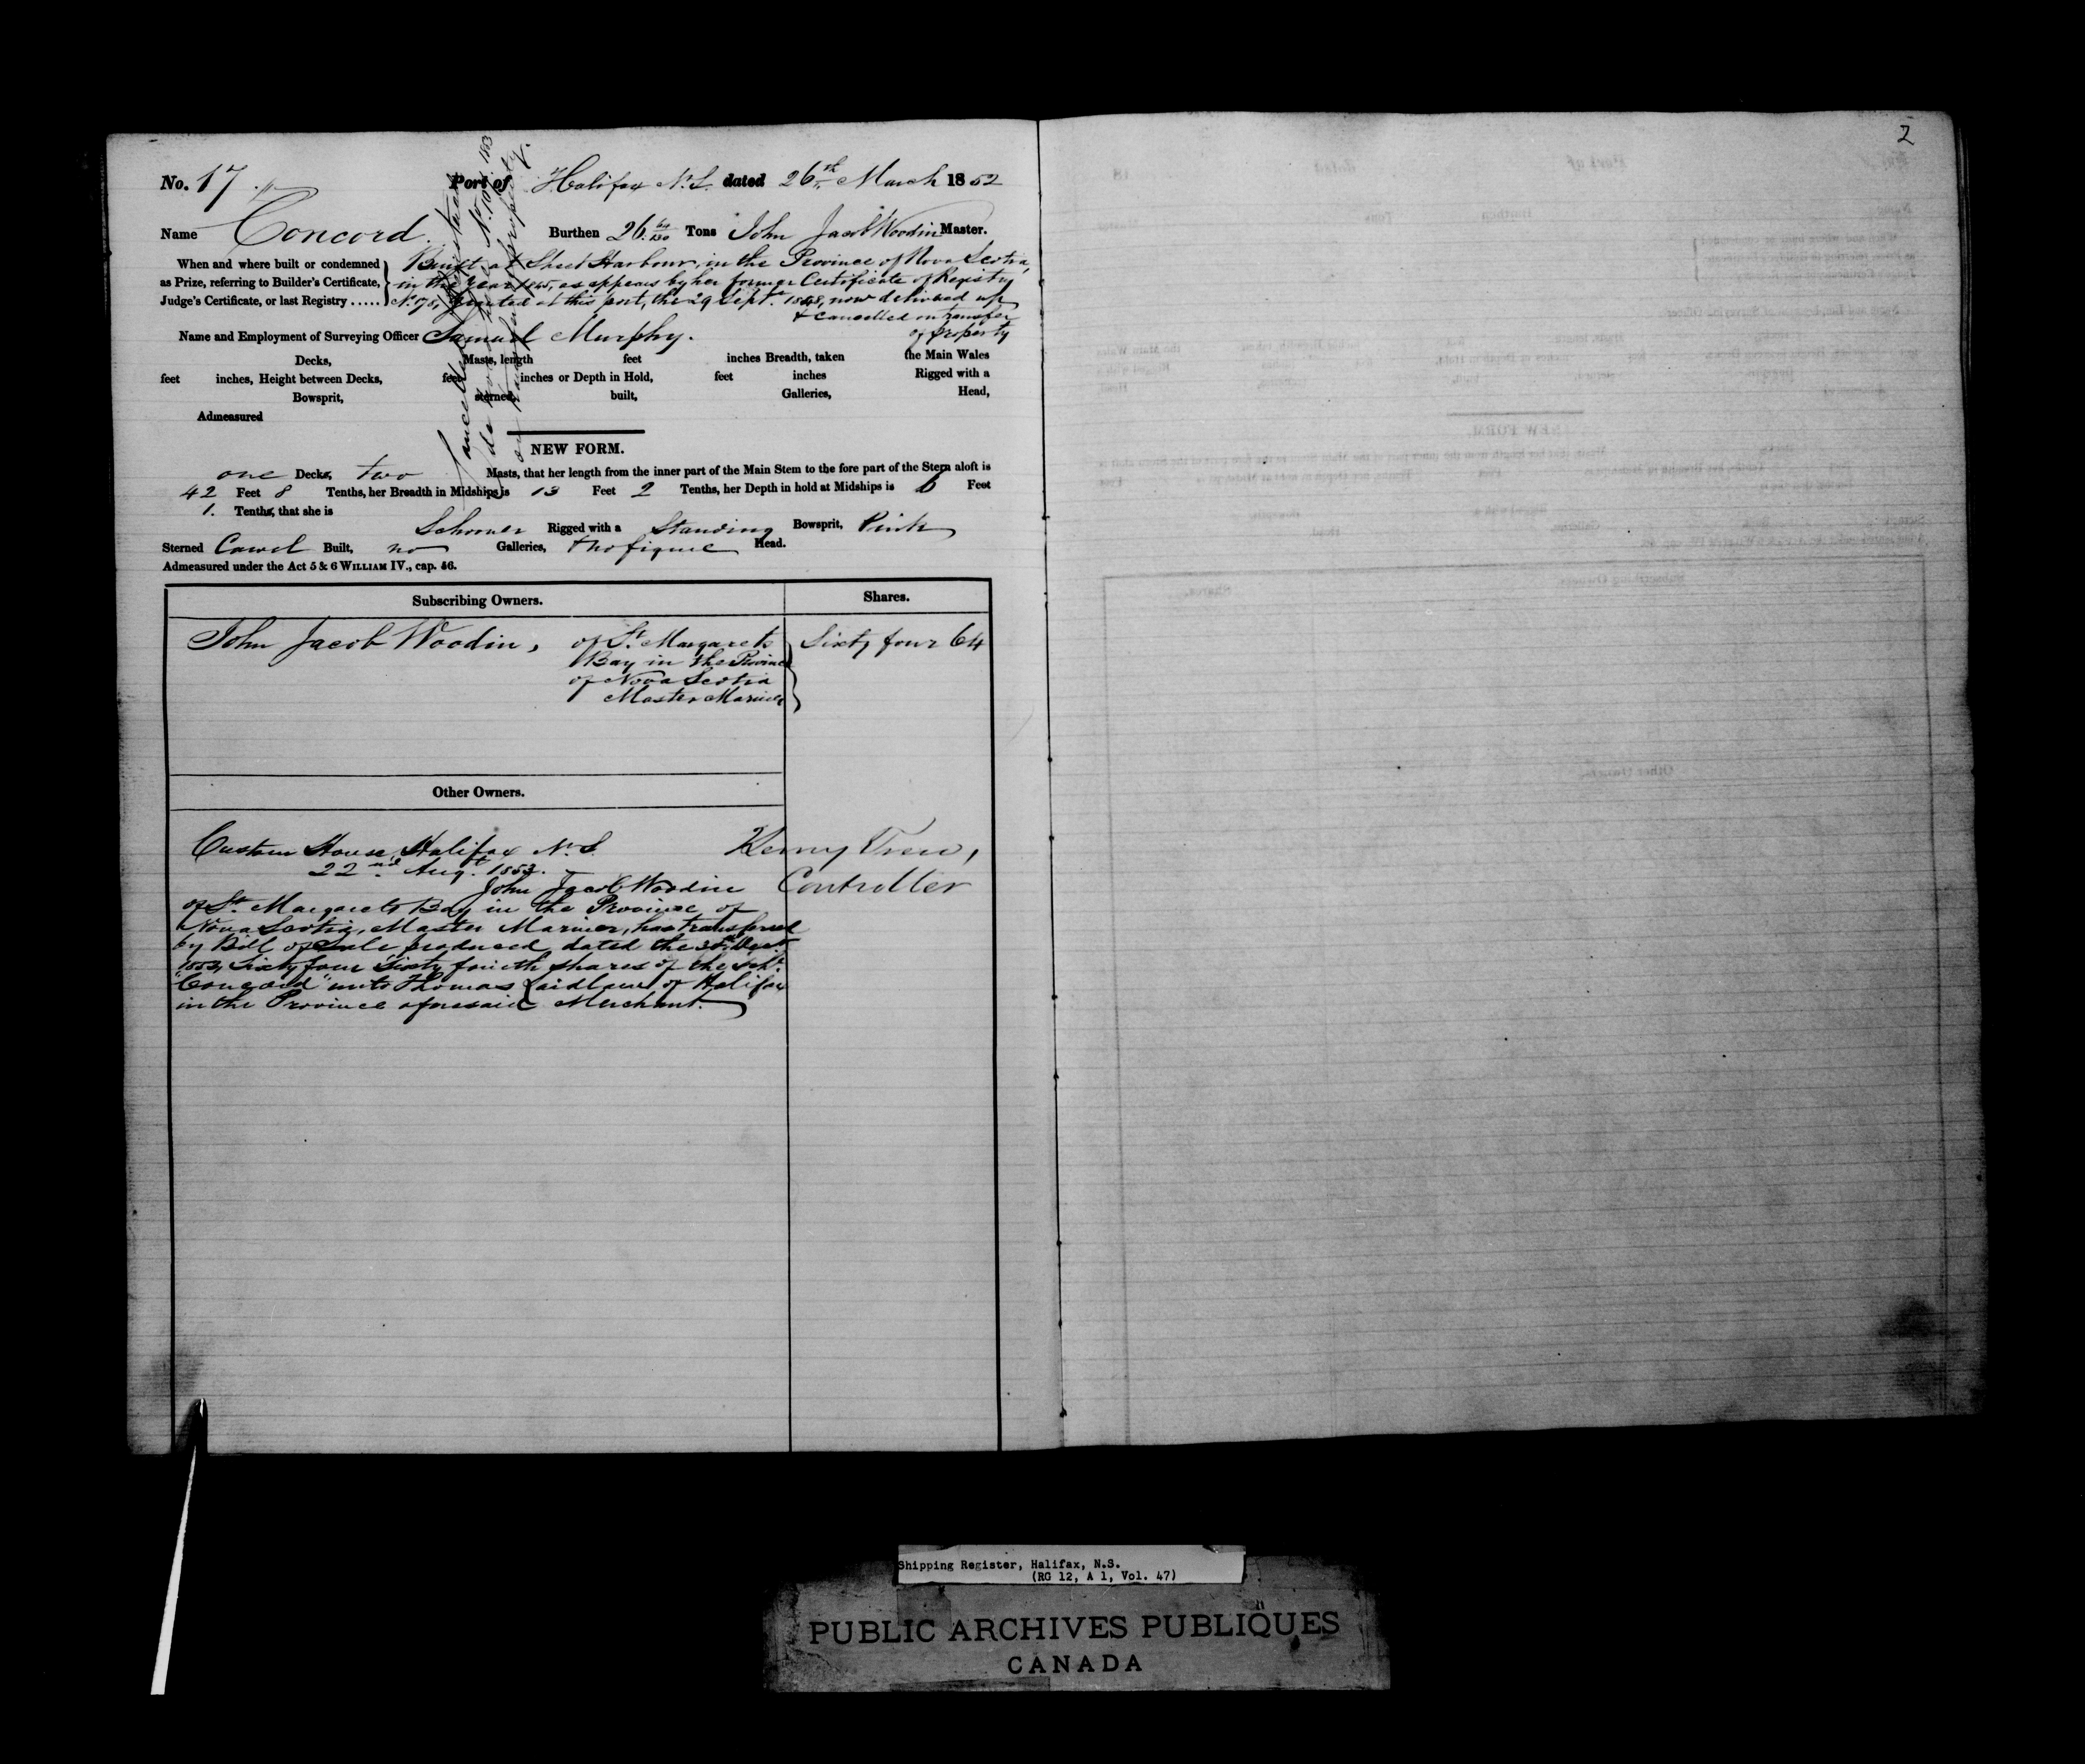 2
No. 17
Port of Halifax N.S. dated 26th March 1852
Name Concord. Burthen 26 64/130 Tons John Jacob Woodin Master.
When and where built or condemned as Prize, referring to Builder's Certificate, Judge's Certificate, or last Registry .....
Built at Sheet Harbour, in the Province of Nova Scotia,
in the Year 1845, as appears by her former Certificate of Registry
No. 78, Granted at this port, the 29 Sept. 1848, now delivered up
& Cancelled on transfer
of property
Name and Employment of Surveying Officer Samuel Murphy.
Decks, Masts, length feet inches Breadth, taken the Main Wales
feet inches, Height between Decks, feet inches or Depth in Hold, feet inches Rigged with a
Bowsprit, sterned, built, Galleries, Head,
Admeasured
NEW FORM.
one Decks, two Masts, that her length from the inner part of the Main Stem to the fore part of the Stern aloft is
42 Feet 8 Tenths, her Breadth in Midships is 13 Feet 2 Tenths, her Depth in hold at Midships is 6 Feet
1. Tenths, that she is
Schooner Rigged with a Standing Bowsprit, Pink
Sterned Carvel Built, no Galleries, & no figure Head.
Admeasured under the Act 5 & 6 WILLIAM IV., cap. 56.
Subscribing Owners. Shares.
John Jacob Woodin, of St. Margarets Sixty four 64
Bay in the Province
of Nova Scotia
Master Mariner
Other Owners.
Custom House, Halifax N.S. Henry Trew,
22nd Augt. 1853. Controller
John Jacob Woodin
of St. Margarets Bay in the Province of
Nova Scotia, Master Mariner, has transferred
by Bill of Sale produced, dated the
1853, Sixty four Sixty fourth shares of the Schr.
"Concord" unto Thomas Laidlaw of Halifax
in the Province aforesaid Merchant.
Shipping Register, Halifax, N.S.
(RG 12, A 1, Vol. 47)
PUBLIC ARCHIVES PUBLIQUES
CANADA